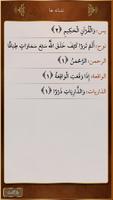 نشانه ها
یس: وَالْقُرْآنِ الْحَكِيمِ ﴿٢﴾
نوح: أَلَمْ تَرَوْا كَيْفَ خَلَقَ اللَّهُ سَبْعَ سَمَاوَاتٍ طِبَاقًا
الرحمن: الرَّحْمَنُ ﴿١﴾
الواقعة: إِذَا وَقَعَتِ الْوَاقِعَةُ ﴿١﴾
الذاريات: وَالذَّارِيَاتِ ذَرْوًا ﴿١﴾